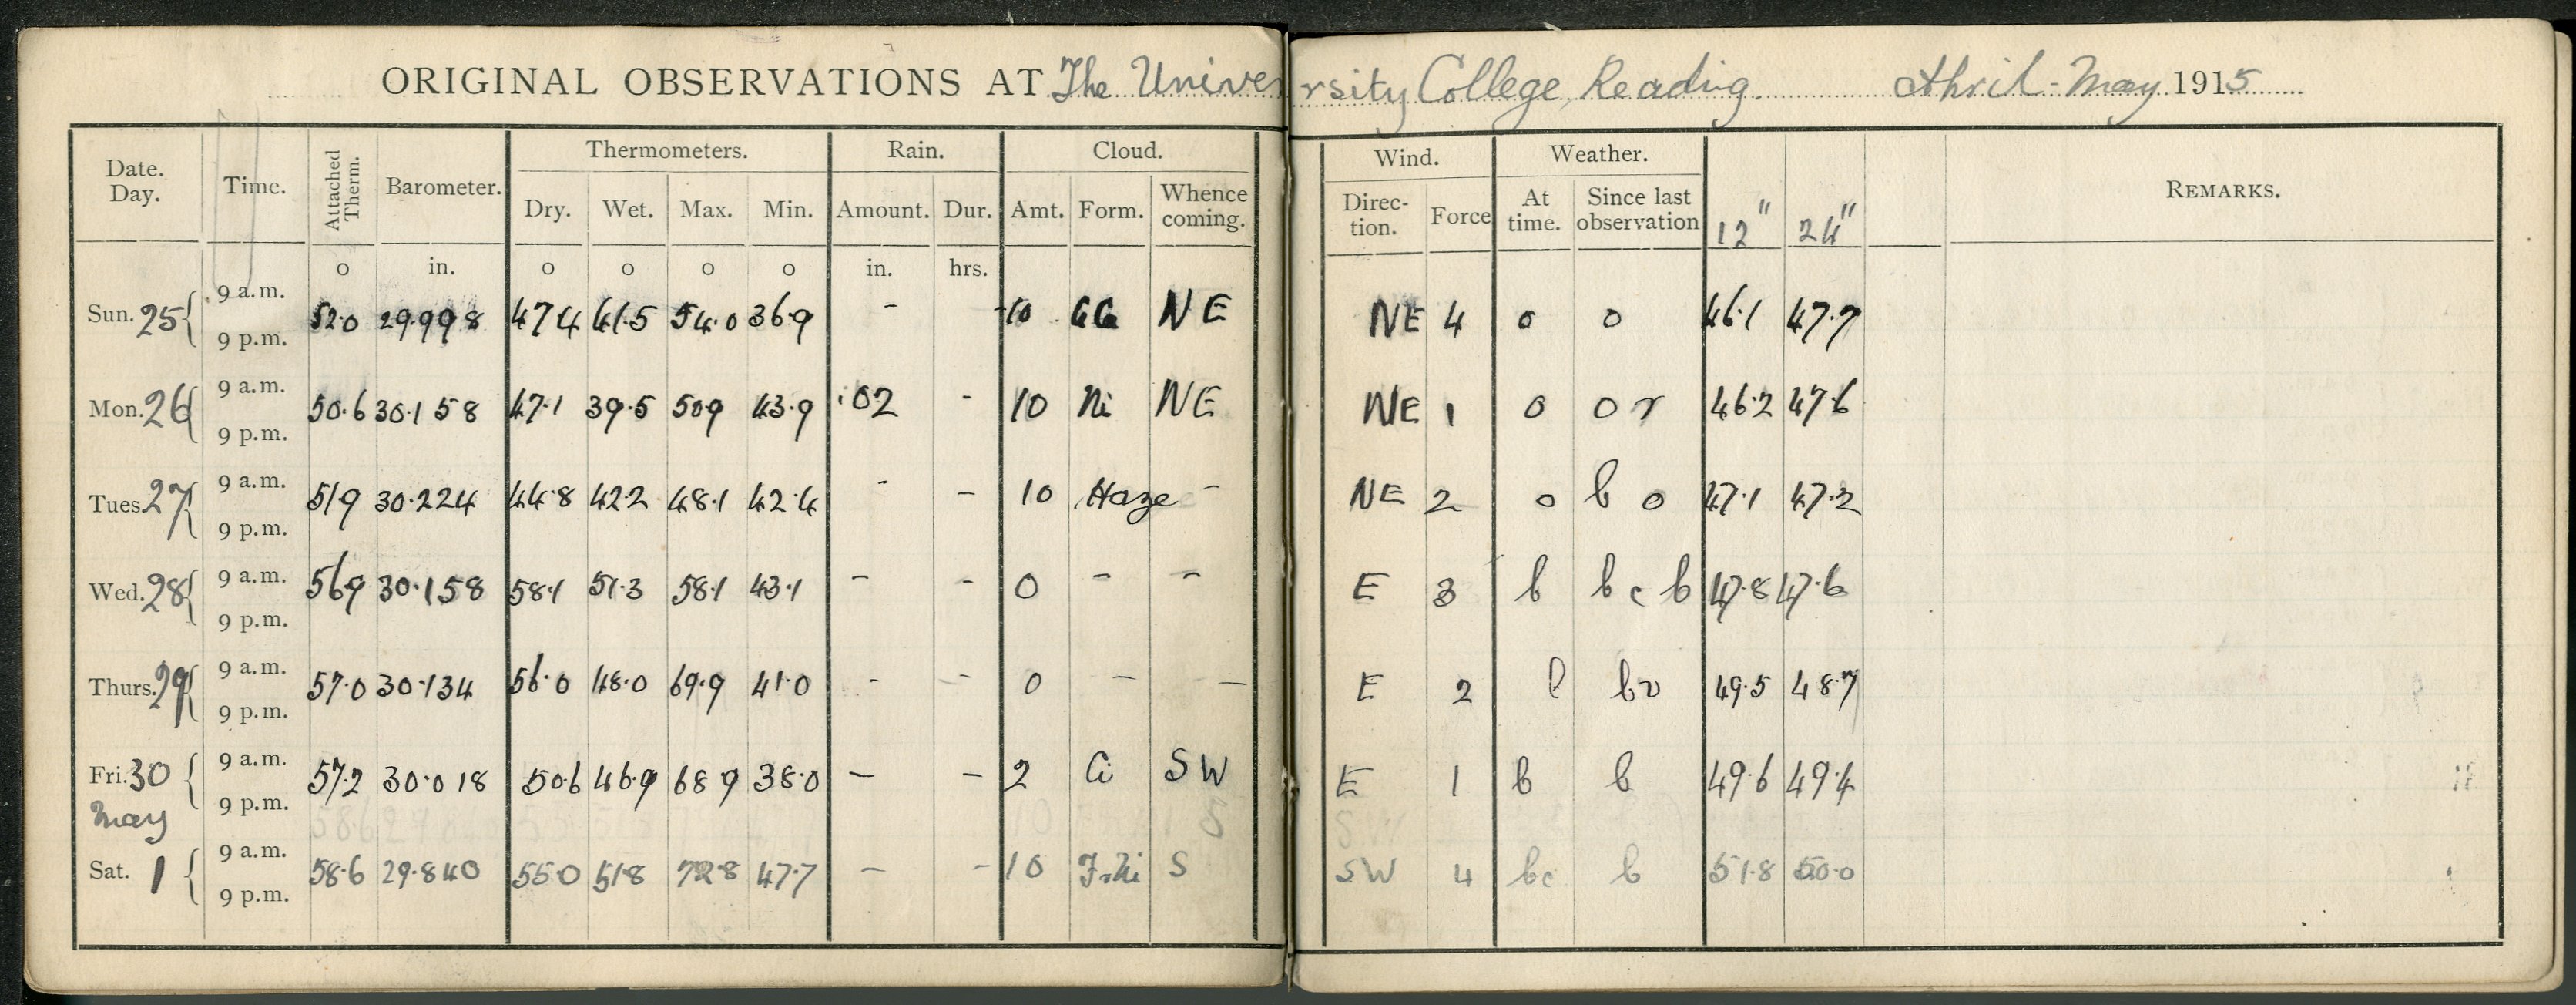 ORIGINAL OBSERVATIONS AT The University College, Reading. April - May 1915
Thermometers. Rain. Cloud. Wind. Weather.
Date. Day. Time. Attached Therm. Barometer. Dry. Wet. Max. Min. Amount. Dur. Amt. Form. Whence coming. Direc- tion. Force At time. Since last observation 12" 24" REMARKS.
o in. o o o o in. hrs.
9 a.m.
Sun. 25 52.0 29.998 47.4 41.5 54.0 36.9 - 10 NE NE 4 o o 46.1 47.7
9 p.m.
9 a.m.
Mon. 26 50.6 30.158 47.1 39.5 50.9 43.9 .02 - 10 Ni NE NE 1 o o r 46.2 47.6
9 p.m.
9 a.m.
Tues. 27 51.9 30.224 44.8 42.2 48.1 42.4 - - 10 Haze - NE 2 o b o 47.1 47.2
9 p.m.
9 a.m.
Wed. 28 56.9 30.158 58.1 51.3 58.1 43.1 - - 0 - - E 3 b b c b 47.8 47.6
9 p.m.
9 a.m.
Thurs. 29 57.0 30.134 56.0 48.0 69.9 41.0 - - 0 - - E 2 b bv 49.5 48.7
9 p.m.
9 a.m.
Fri. 30 57.2 30.018 50.6 46.9 68.9 38.0 - - 2 Ci SW E 1 b b 49.6 49.4
9 p.m.
May
9 a.m.
Sat. 1 58.6 29.840 55.0 51.8 72.8 47.7 - - 10 Fr.Ni S SW 4 bc b 51.8 50.0
9 p.m.